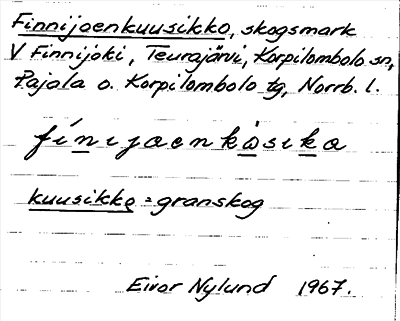 Finnijoenkuusikko, skogsmark
V Finnijoki, Teurajärvi, Korpilombolo sn,
Pajala o. Korpilombolo tg, Norrb. l.
kuusikko = granskog
Eivor Nylund 1967.